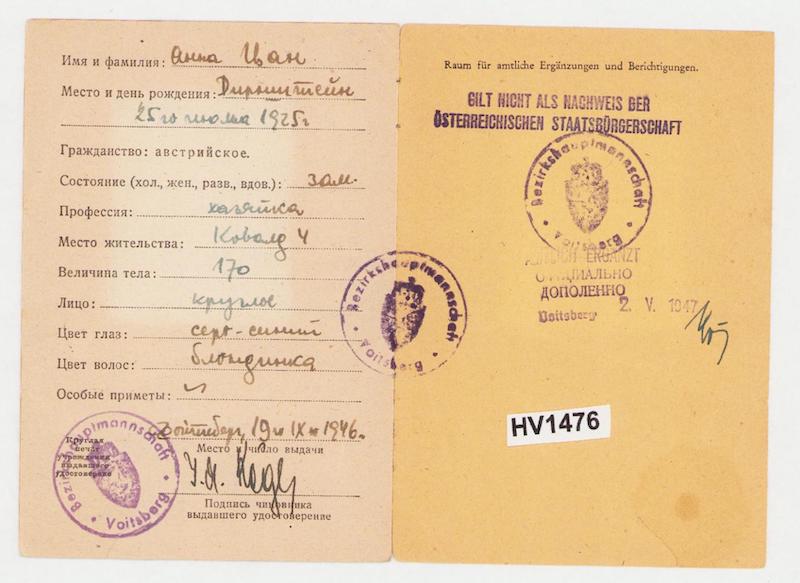 Имя и фамилия: Анна Цан
Место и день рождения: Дирнштейн
25го июля 1925г
Гражданство: австрийское.
Состояние (хол., жен., разв., вдов.): зам.
Профессия: хазяйка
Место жительства: Ковалд 4
Величина тела: 170
Лицо: круглое
Цвет глаз: серо-синий
Цвет волос: блондинка
Особые приметы:
Фойтсберг, 19го IXго 1946г.
Место и число выдачи
Круглая
печать
учреждения
выдавшего
удостоверение
Подпись чиновника
выдавшего удостоверение
Bezirkshauptmannschaft
Voitsberg
Bezirkshauptmannschaft
Voitsberg
Raum für amtliche Ergänzungen und Berichtigungen.
GILT NICHT ALS NACHWEIS DER
ÖSTERREICHISCHEN STAATSBÜRGERSCHAFT
Bezirkshauptmannschaft
Voitsberg
AMTLICH ERGÄNZT
ОФИЦИАЛЬНО
ДОПОЛЕННО
2. V. 1947
Voitsberg
HV1476